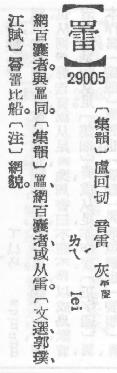 【䍣】
29005
〔集韻〕盧回切 音雷 灰平聲
ㄌㄟˊ lei
網百囊者。與同。〔集韻〕網百囊者、或从雷。〔文選郭璞、
江賦〕罾䍣比船。〔注〕網貌。